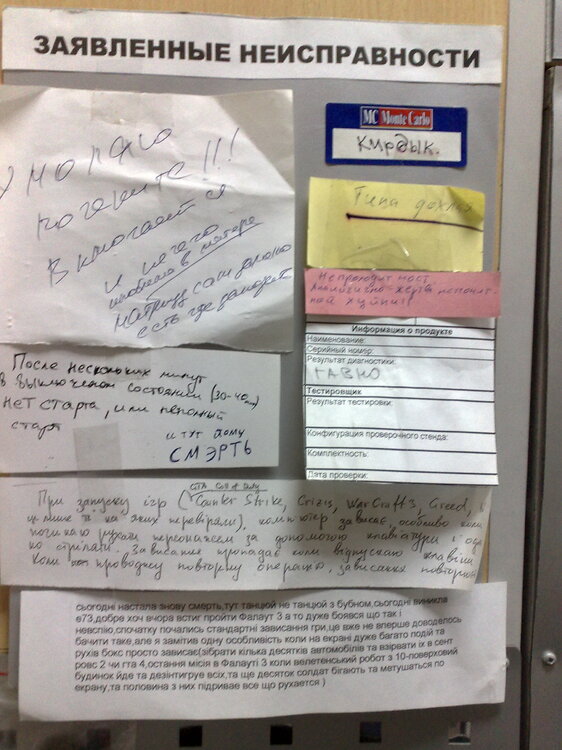 ЗАЯВЛЕННЫЕ НЕИСПРАВНОСТИ
Умоляю
почените!!!
Включается
и нечего
проблема в матере
матрицу сам далаю
есть где замодет
MC Monte Carlo
Кирдык.
Типа дохлая
Не проходит мост
Аналогично жертв непонят-
ной хуйни!!
Информация о продукте
Наименование:
Серийный номер:
Результат диагностики:
ГАВНО
Тестировщик
Результат тестировки:
Конфигурация проверочного стенда:
Комплектность:
Дата проверки:
После нескольких минут
в выключеном состоянии (30-40мин)
нет старта, или неполный
старт
и тут йому
СМЭРТЬ
GTA Call of duty
При запуску ігр (Counter Strike, Crizis, WarCraft 3, Greed, і
ці лише ті на яких перевіряли), компютер зависає, особливо коли
починаю рухати персонажем за допомогою клавіатури і одн
ко стріляти. Зависання пропадає коли відпускаю клавіши
Коли проводжу повторну операцію, зависання повторю
сьогодні настала знову смерть,тут танцюй не танцюй з бубном,сьогодні виникла
е73,добре хоч вчора встиг пройти Фалаут 3 а то дуже боявся що так і
невспію,спочатку почались стандартні зависання гри,це вже не вперше доводелось
бачити таке,але я замітив одну особливість коли на екрані дуже багато подій та
рухів бокс просто зависає(зібрати кілька десятків автомобілів та взірвати їх в сент
ровс 2 чи гта 4,остання місія в Фалауті 3 коли велетенський робот з 10-поверховий
будинок йде та дезінтигрує всіх,та ще десяток солдат бігають та метушаться по
екрану,та половина з них підриває все що рухается )